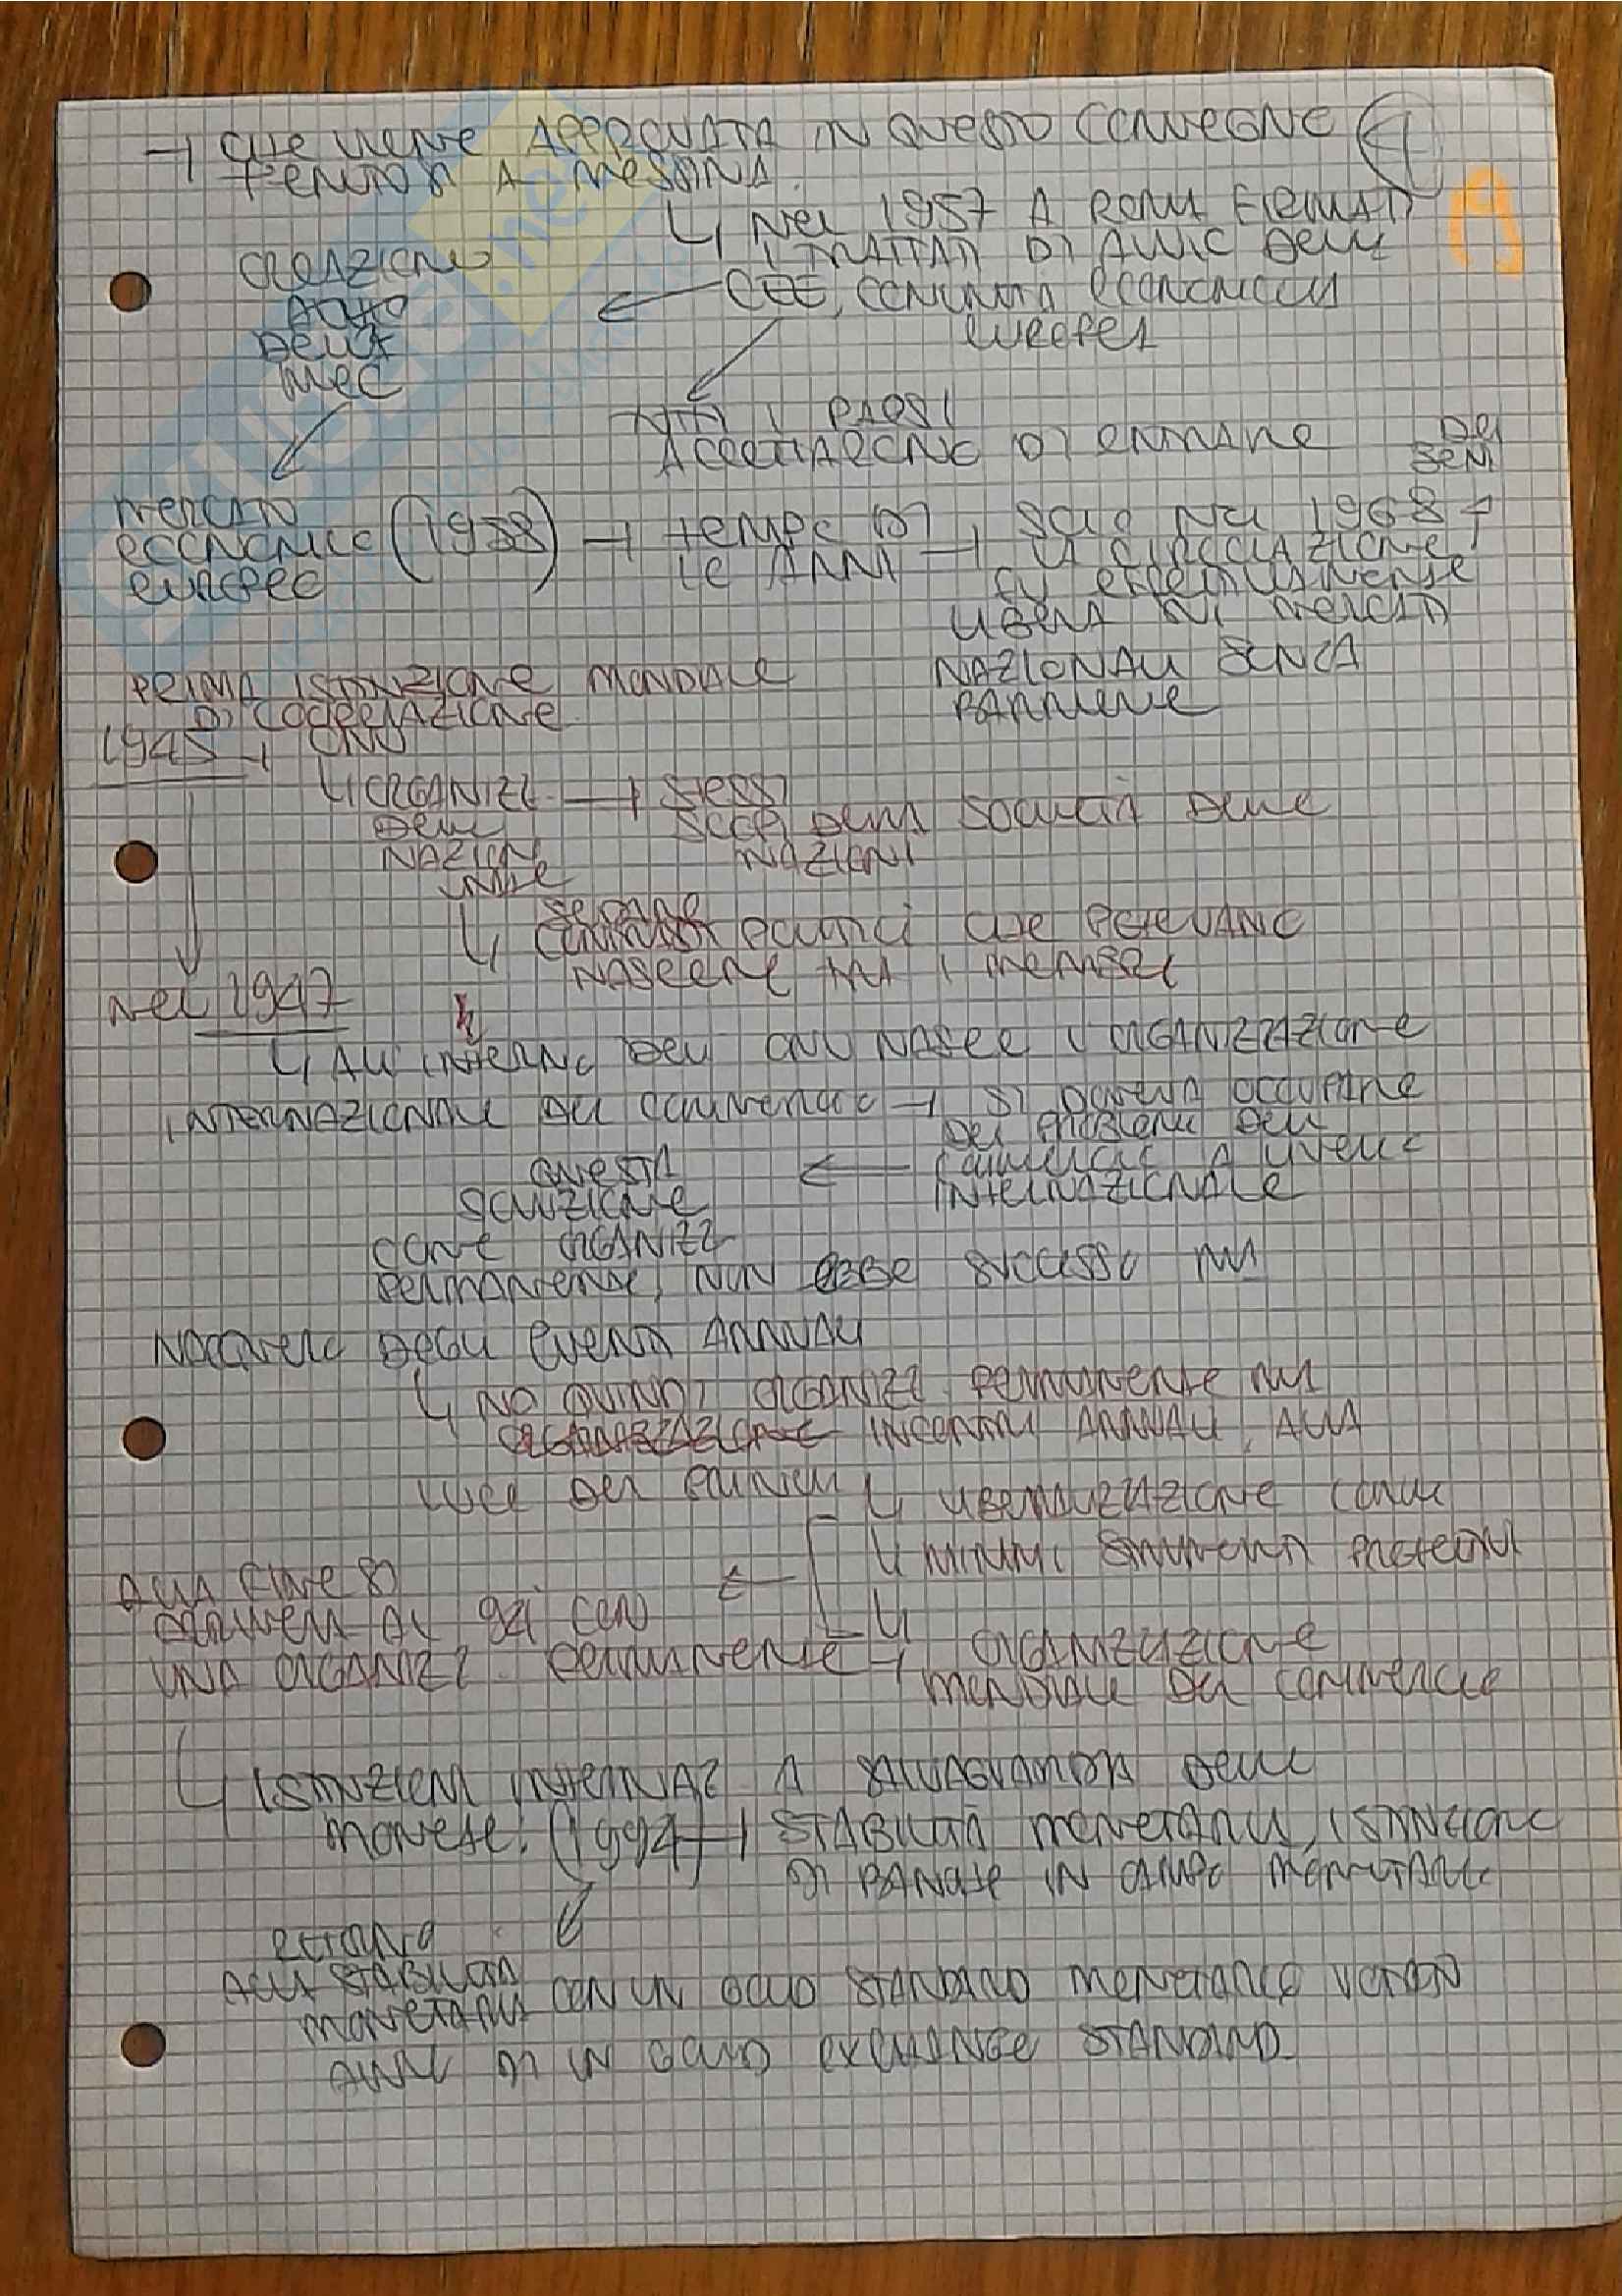 → CHE VIENE APPROVATA IN QUESTO CONVEGNO
TENUTOSI A MESSINA.
↳ NEL 1957 A ROMA FIRMATI
I TRATTATI DI AVVIO DELLA
CEE, COMUNITÀ ECONOMICA
EUROPEA
CREAZIONE
DELLA
MEC
TUTTI I PAESI
ACCETTARONO DI ENTRARE
MERCATO
ECONOMICO (1958) → TEMPO DI → SOLO NEL 1968 ↑
EUROPEO
10 ANNI
DEI
BENI
LA CIRCOLAZIONE
FU EFFETTIVAMENTE
LIBERA SUI MERCATI
NAZIONALI SENZA
BARRIERE
PRIMA ISTITUZIONE MONDIALE
DI COOPERAZIONE
1945 → ONU
↳ ORGANIZZ. → STESSI
DELLE
SCOPI DELLA SOCIETÀ DELLE
NAZIONI
NAZIONI
UNITE
↳ SEDARE
CONTRASTI POLITICI CHE POTEVANO
NASCERE TRA I MEMBRI
NEL 1947
↳ ALL'INTERNO DELL ONU NASCE L'ORGANIZZAZIONE
INTERNAZIONALE DEL COMMERCIO → SI DOVEVA OCCUPARE
DEI PROBLEMI DEL
COMMERCIO A LIVELLO
INTERNAZIONALE
←
QUESTA
SOLUZIONE
COME ORGANIZZ
PERMANENTE, NON EBBE SUCCESSO MA
NACQUERO DEGLI EVENTI ANNUALI
↳ NO QUINDI ORGANIZZ. PERMANENTE MA
ORGANIZZAZIONE INCONTRI ANNUALI, ALLA
LUCE DEI PRINCIPI
↳ LIBERALIZZAZIONE
↳ MINIMI STRUMENTI PROTETTIVI
ALLA FINE SI
ARRIVERÀ AL 94 CON
UNA ORGANIZZ. PERMANENTE →
ORGANIZZAZIONE
MONDIALE DEL COMMERCIO
↳ ISTITUZIONI INTERNAZ. A SALVAGUARDIA DELLE
MONETE: (1994) → STABILITÀ MONETARIA, ISTITUZIONI
DI BANCHE IN CAMPO MONETARIO
RITORNO
ALLA STABILITÀ
MONETARIA CON UN GOLD STANDARD MONETARIO
DI UN GOLD EXCHANGE STANDARD.